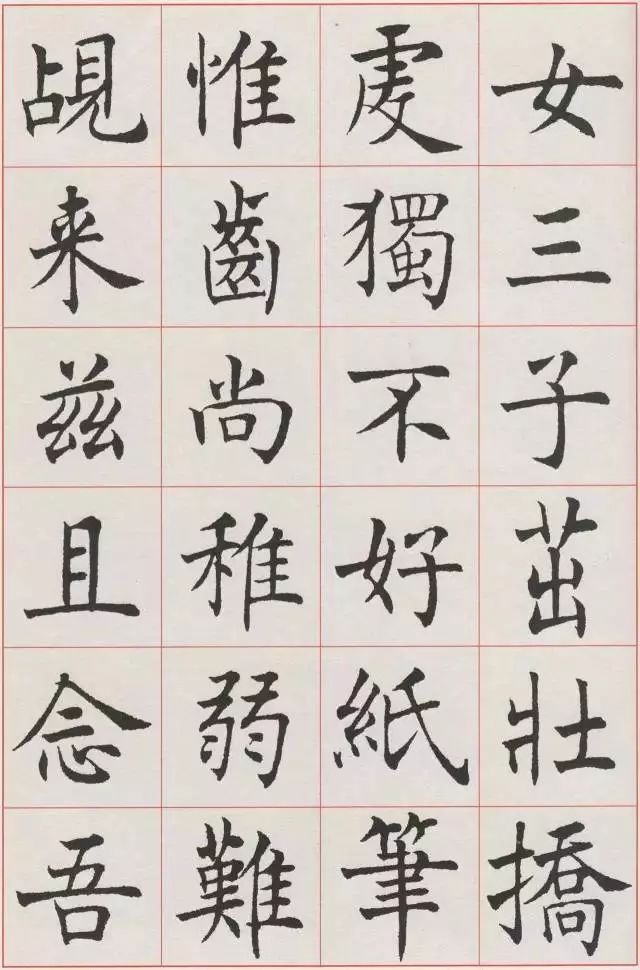 女三子茁壯撟
虔獨不好紙筆
惟齒尚稚弱難
覘来兹且念吾